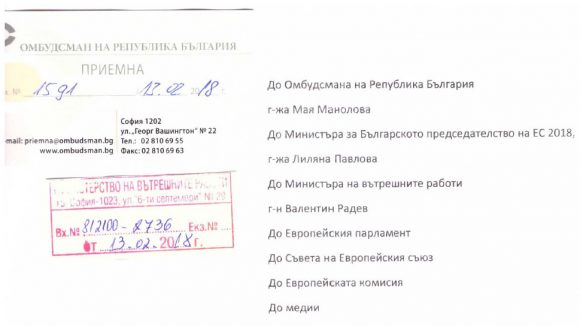 ОМБУДСМАН НА РЕПУБЛИКА БЪЛГАРИЯ
ПРИЕМНА
№ 1591 13.02 2018 г.
София 1202
ул. „Георг Вашингтон" № 22
e-mail: priemna@ombudsman.bg Тел.: 02 810 69 55
www.ombudsman.bg Факс: 02 810 69 63
МИНИСТЕРСТВО НА ВЪТРЕШНИТЕ РАБОТИ
гр. София-1023, ул. "6-ти септември" № 29
Вх.№ 812100-2736 Екз.№
от 13.02.2018 г.
До Омбудсмана на Република България
г-жа Мая Манолова
До Министъра за Българското председателство на ЕС 2018,
г-жа Лиляна Павлова
До Министъра на вътрешните работи
г-н Валентин Радев
До Европейския парламент
До Съвета на Европейския съюз
До Европейската комисия
До медии